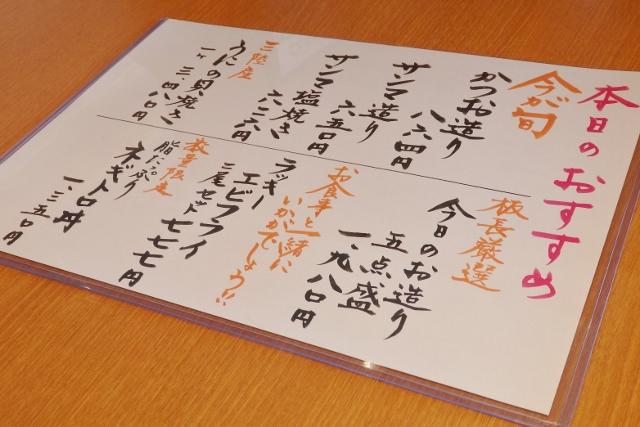 本日のおすすめ
今が旬
かつお造り
八六四円
サンマ造り
六五〇円
サンマ塩焼き
六二六円
三陸産
うにの貝焼き
一ヶ 三、四八〇円
板長厳選
今日のお造り
五点盛
一、九八〇円
お食事と一緒に
いかがでしょう!!
ラッキー
エビフライ
二尾セット 七七七円
数量限定
脂たっぷり
ネギトロ丼
一、三五〇円